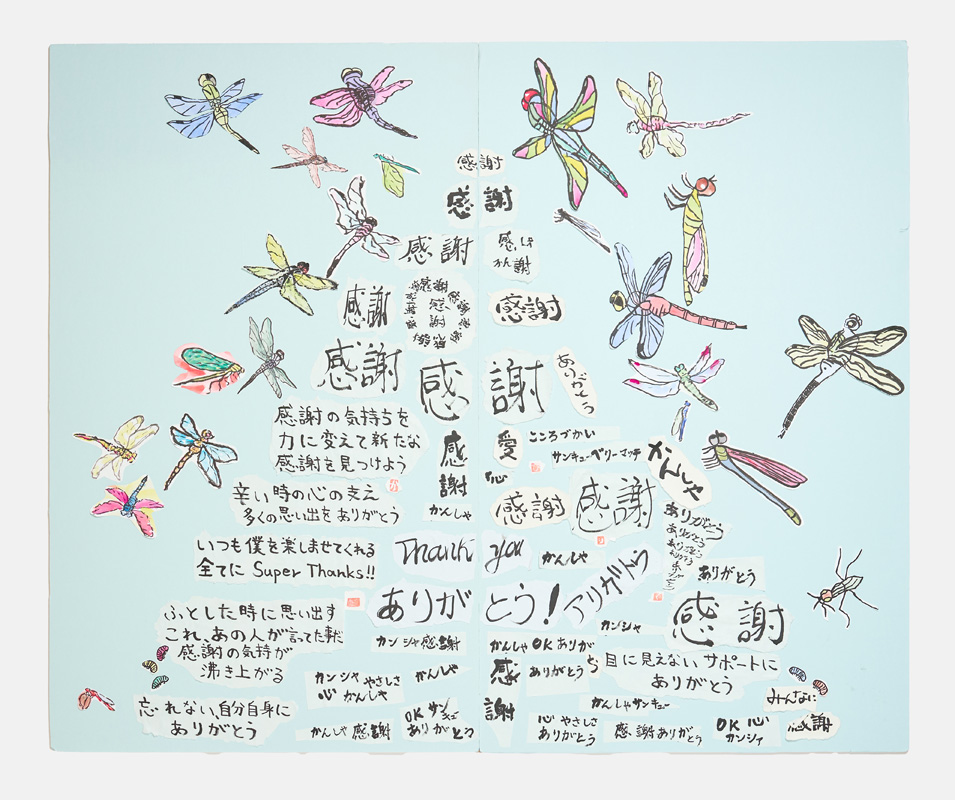 感謝
感謝
感謝
感謝
感謝
感謝
感謝
感謝
感謝
ありがとう
感謝の気持ちを
力に変えて新たな
感謝を見つけよう
感謝
かんしゃ
愛
心
こころづかい
サンキューベリーマッチ
かんしゃ
辛い時の心の支え
多くの思い出をありがとう
感謝
感謝
ありがとう
ありがとう
ありがとう
ありがとう
いつも僕を楽しませてくれる
全てに Super Thanks!!
Thank you
かんしゃ
ありがとう
ありがとう!
アリガトウ
カンシャ
感謝
ふとした時に思い出す
これ、あの人が言ってた事だ
感謝の気持が
沸き上がる
カンシャ感謝
かんしゃ OK ありがとう
カンシャ やさしさ
心 かんしゃ
かんしゃ
感謝
ありがとう
目に見えないサポートに
ありがとう
かんしゃサンキュー
みんなに
感謝
忘れない、自分自身に
ありがとう
かんしゃ 感謝
OK サンキュー
ありがとう
心 やさしさ
ありがとう
感謝ありがとう
OK 心
カンシァ